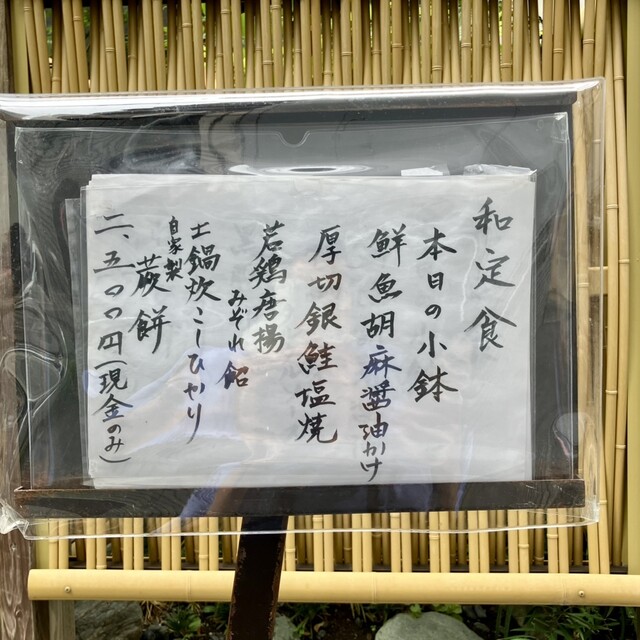 和定食
本日の小鉢
鮮魚胡麻醤油かけ
厚切銀鮭塩焼
若鶏唐揚
みぞれ餡
土鍋炊こしひかり
自家製
蕨餅
二、五〇〇円(現金のみ)